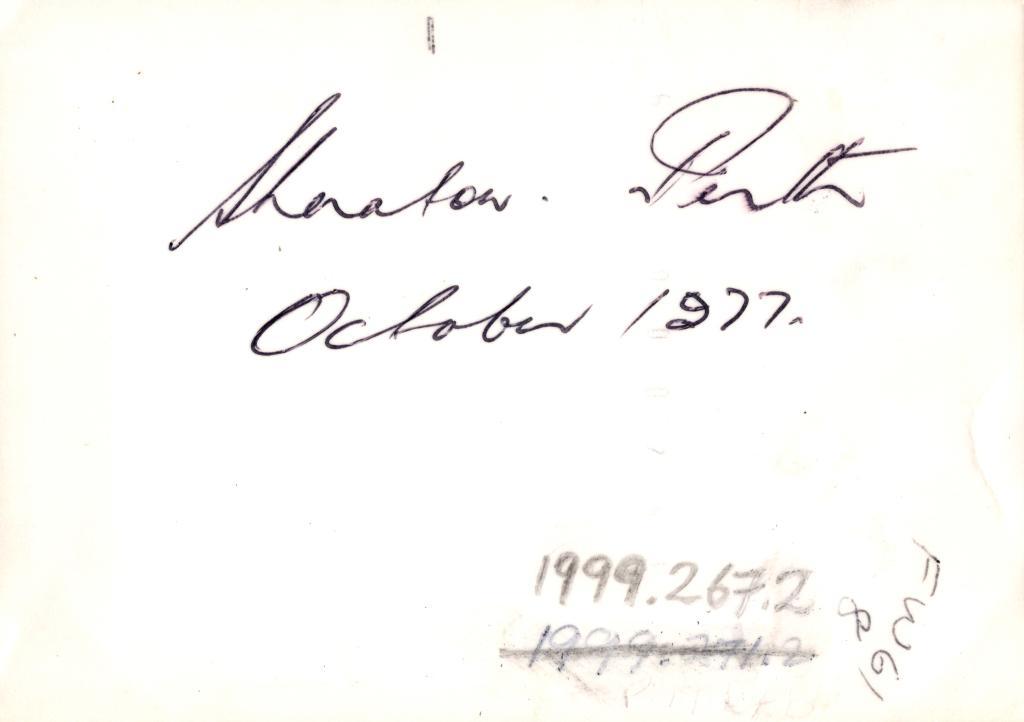 Sheraton. Perth
October 1977.
1999.267.2
1999.271.2